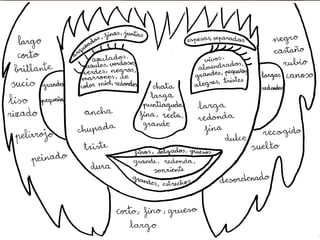 largo
corto
brillante
sucio
liso
rizado
pelirrojo
peinado
arqueadas, finas, juntas
espesas, separadas
negro
castaño
rubio
canoso
recogido
suelto
desordenado
verdes, negros,
marrones, de
color miel, redondos
vivos,
almendrados,
grandes, pequeños
alegres, tristes
grandes
pequeñas
largas
redondas
chata
larga
puntiaguda
fina, recta,
grande
ancha
chupada
triste
dura
larga
redonda
fina
dulce
finos, delgados, gruesos
grande, redonda,
sonriente
grandes, estrechos
corto, fino, grueso
largo